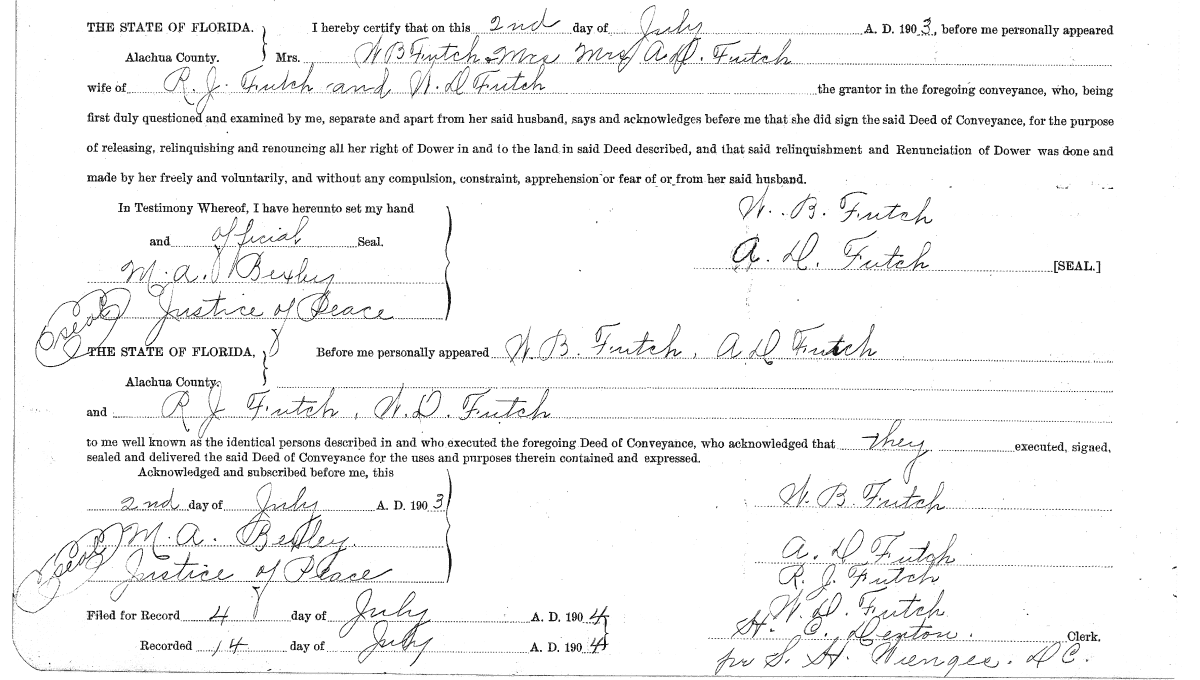 THE STATE OF FLORIDA. I hereby certify that on this 2nd day of July A. D. 1903, before me personally appeared
Alachua County. Mrs. W B Futch & Mrs Mrs A D. Futch
wife of R. J. Futch and W. D Futch the grantor in the foregoing conveyance, who, being
first duly questioned and examined by me, separate and apart from her said husband, says and acknowledges before me that she did sign the said Deed of Conveyance, for the purpose
of releasing, relinquishing and renouncing all her right of Dower in and to the land in said Deed described, and that said relinquishment and Renunciation of Dower was done and
made by her freely and voluntarily, and without any compulsion, constraint, apprehension or fear of or from her said husband.
In Testimony Whereof, I have hereunto set my hand W. B. Futch
and official Seal.
A. D. Futch [SEAL.]
M. A. Bexley
(Seal) Justice of Peace
THE STATE OF FLORIDA, Before me personally appeared W B. Futch, A D Futch
Alachua County.
and R J Futch, W. D. Futch
to me well known as the identical persons described in and who executed the foregoing Deed of Conveyance, who acknowledged that they executed, signed,
sealed and delivered the said Deed of Conveyance for the uses and purposes therein contained and expressed.
Acknowledged and subscribed before me, this
2nd day of July A. D. 1903 W. B Futch
(Seal) M. A. Bexley
A. D Futch
Justice of Peace R. J. Futch
Filed for Record 4 day of July A. D. 1904 W. D. Futch
H. C. Denton. Clerk.
Recorded 14 day of July A. D. 1904
per S. H. Wienges. D C.